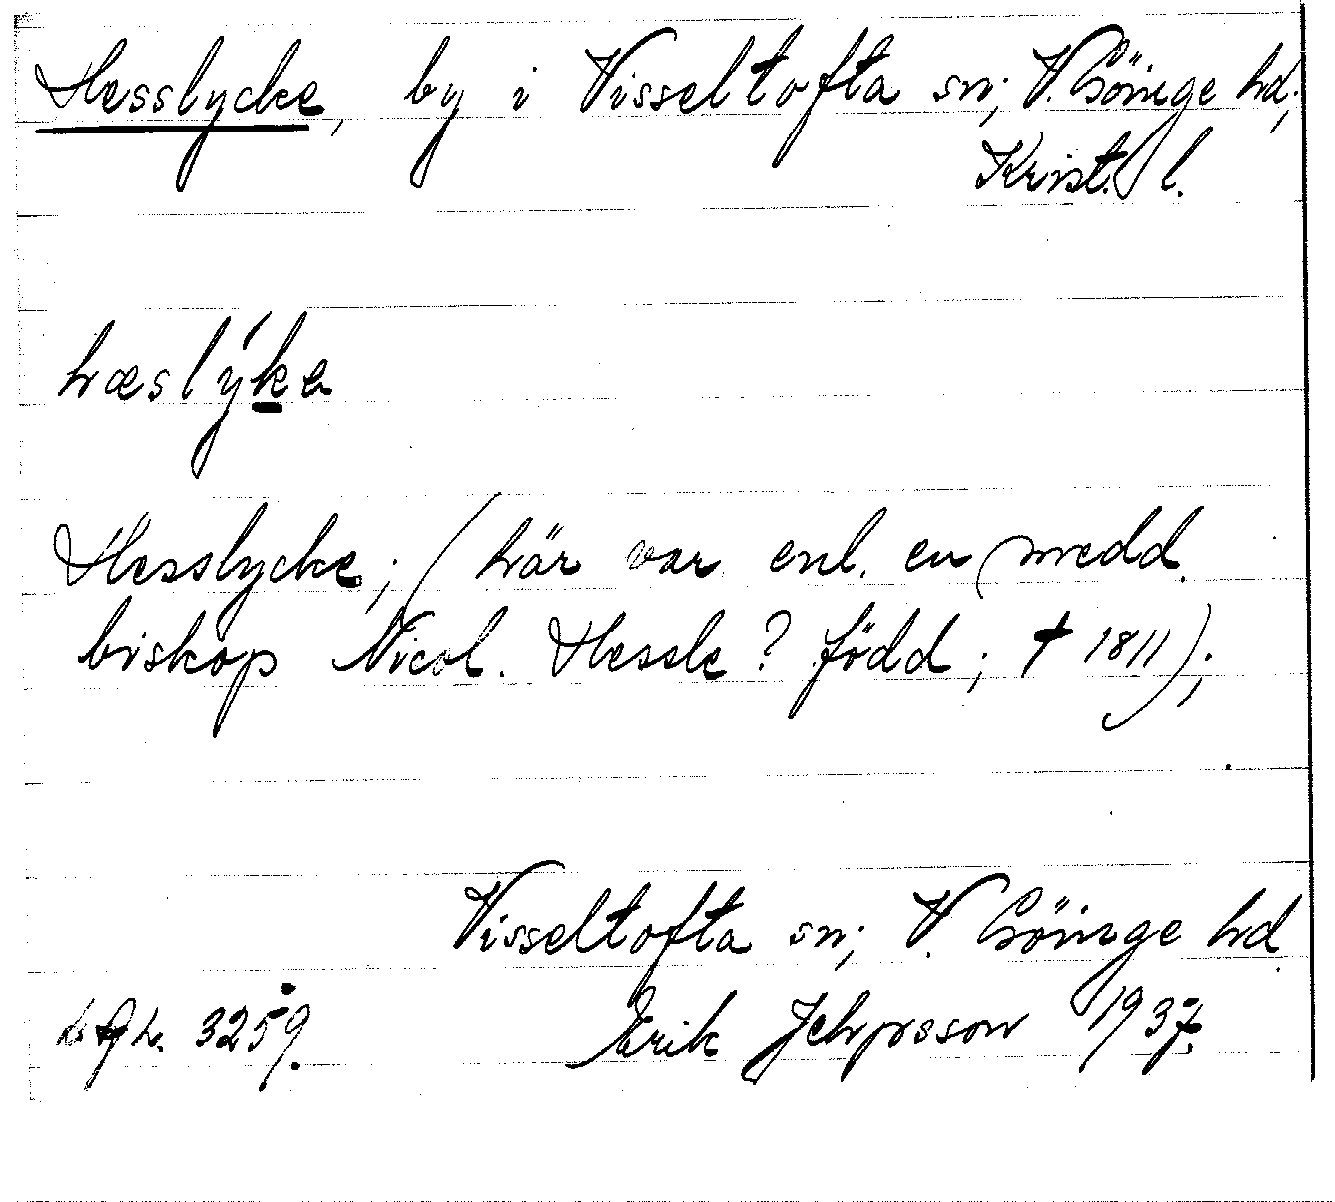 Hesslycke, by i Visseltofta sn; V. Göinge hd;
Krist. l.
hæslýke
Hesslycke; (här var enl. en medd.
biskop Nicol. Hessle? född; † 1811);
Visseltofta sn; V. Göinge hd.
3259. Erik Jehpsson 1937.